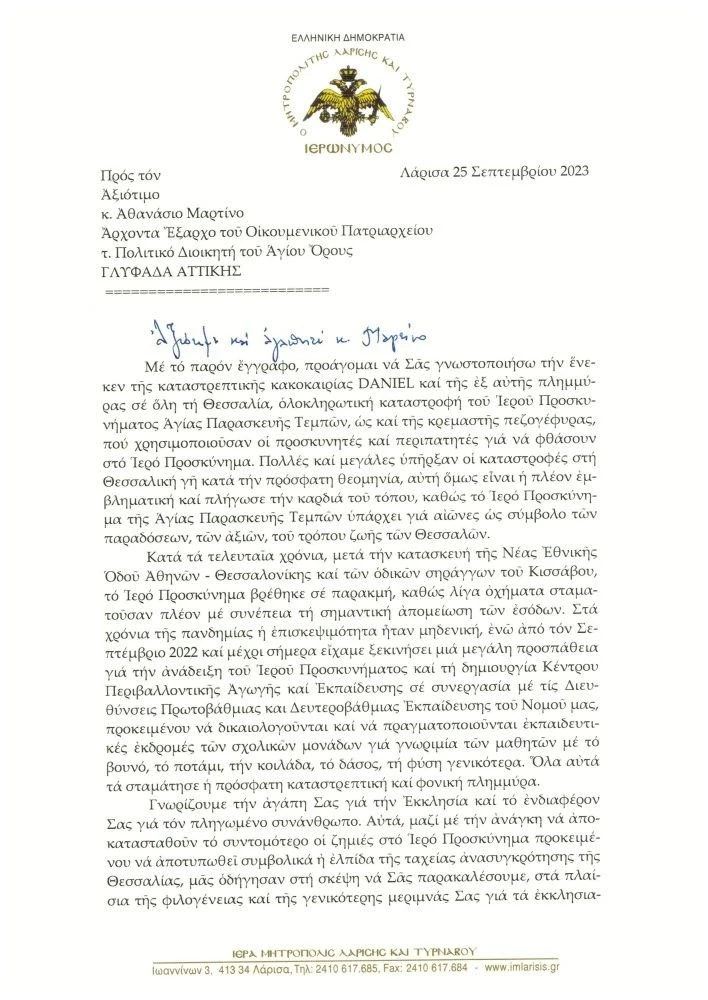 ΕΛΛΗΝΙΚΗ ΔΗΜΟΚΡΑΤΙΑ
Ο ΜΗΤΡΟΠΟΛΙΤΗΣ ΛΑΡΙΣΗΣ ΚΑΙ ΤΥΡΝΑΒΟΥ
ΙΕΡΩΝΥΜΟΣ
Πρός τόν
Λάρισα 25 Σεπτεμβρίου 2023
Ἀξιότιμο
κ. Ἀθανάσιο Μαρτίνο
Ἄρχοντα Ἔξαρχο τοῦ Οἰκουμενικοῦ Πατριαρχείου
τ. Πολιτικό Διοικητή τοῦ Ἁγίου Ὄρους
ΓΛΥΦΑΔΑ ΑΤΤΙΚΗΣ
==========================
Ἀξιότιμε καί ἀγαπητέ κ. Μαρτίνο
Μέ τό παρόν ἔγγραφο, προάγομαι νά Σᾶς γνωστοποιήσω τήν ἕνε-
κεν τῆς καταστρεπτικῆς κακοκαιρίας DANIEL καί τῆς ἐξ αὐτῆς πλημμύ-
ρας σέ ὅλη τή Θεσσαλία, ὁλοκληρωτική καταστροφή τοῦ Ἱεροῦ Προσκυ-
νήματος Ἁγίας Παρασκευῆς Τεμπῶν, ὡς καί τῆς κρεμαστῆς πεζογέφυρας,
πού χρησιμοποιοῦσαν οἱ προσκυνητές καί περιπατητές γιά νά φθάσουν
στό Ἱερό Προσκύνημα. Πολλές καί μεγάλες ὑπῆρξαν οἱ καταστροφές στή
Θεσσαλική γῆ κατά τήν πρόσφατη θεομηνία, αὐτή ὅμως εἶναι ἡ πλέον ἐμ-
βληματική καί πλήγωσε τήν καρδιά τοῦ τόπου, καθώς τό Ἱερό Προσκύνη-
μα τῆς Ἁγίας Παρασκευῆς Τεμπῶν ὑπάρχει γιά αἰῶνες ὡς σύμβολο τῶν
παραδόσεων, τῶν ἀξιῶν, τοῦ τρόπου ζωῆς τῶν Θεσσαλῶν.
Κατά τά τελευταῖα χρόνια, μετά τήν κατασκευή τῆς Νέας Ἐθνικῆς
Ὁδοῦ Ἀθηνῶν - Θεσσαλονίκης καί τῶν ὁδικῶν σηράγγων τοῦ Κισσάβου,
τό Ἱερό Προσκύνημα βρέθηκε σέ παρακμή, καθώς λίγα ὀχήματα σταμα-
τοῦσαν πλέον μέ συνέπεια τή σημαντική ἀπομείωση τῶν ἐσόδων. Στά
χρόνια τῆς πανδημίας ἡ ἐπισκεψιμότητα ἦταν μηδενική, ἐνῶ ἀπό τόν Σε-
πτέμβριο 2022 καί μέχρι σήμερα εἴχαμε ξεκινήσει μιά μεγάλη προσπάθεια
γιά τήν ἀνάδειξη τοῦ Ἱεροῦ Προσκυνήματος καί τή δημιουργία Κέντρου
Περιβαλλοντικῆς Ἀγωγῆς καί Ἐκπαίδευσης σέ συνεργασία μέ τίς Διευ-
θύνσεις Πρωτοβάθμιας καί Δευτεροβάθμιας Ἐκπαίδευσης τοῦ Νομοῦ μας,
προκειμένου νά δικαιολογοῦνται καί νά πραγματοποιοῦνται ἐκπαιδευτι-
κές ἐκδρομές τῶν σχολικῶν μονάδων γιά γνωριμία τῶν μαθητῶν μέ τό
βουνό, τό ποτάμι, τήν κοιλάδα, τό δάσος, τή φύση γενικότερα. Ὅλα αὐτά
τά σταμάτησε ἡ πρόσφατη καταστρεπτική καί φονική πλημμύρα.
Γνωρίζουμε τήν ἀγάπη Σας γιά τήν Ἐκκλησία καί τό ἐνδιαφέρον
Σας γιά τόν πληγωμένο συνάνθρωπο. Αὐτά, μαζί μέ τήν ἀνάγκη νά ἀπο-
κατασταθοῦν τό συντομότερο οἱ ζημιές στό Ἱερό Προσκύνημα προκειμέ-
νου νά ἀποτυπωθεῖ συμβολικά ἡ ἐλπίδα τῆς ταχείας ἀνασυγκρότησης τῆς
Θεσσαλίας, μᾶς ὁδήγησαν στή σκέψη νά Σᾶς παρακαλέσουμε, στά πλαί-
σια τῆς φιλογένειας καί τῆς γενικότερης μεριμνάς Σας γιά τά ἐκκλησια-
ΙΕΡΑ ΜΗΤΡΟΠΟΛΙΣ ΛΑΡΙΣΗΣ ΚΑΙ ΤΥΡΝΑΒΟΥ
Ιωαννίνων 3, 413 34 Λάρισα, Τηλ: 2410 617.685, Fax: 2410 617.684 - www.imlarisis.gr